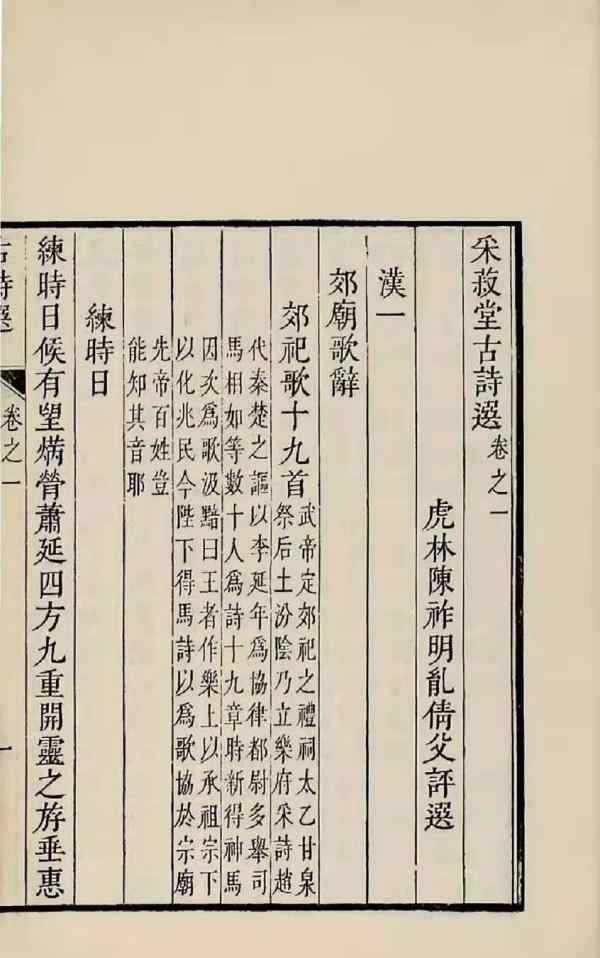 采菽堂古詩選 卷之一
虎林陳祚明胤倩父評選
漢一
郊廟歌辭
郊祀歌十九首
武帝定郊祀之禮祠太乙甘泉
祭后土汾陰乃立樂府采詩趙
代秦楚之謳以李延年爲協律都尉多舉司
馬相如等數十人爲詩十九章時新得神馬
因次爲歌汲黯曰王者作樂上以承祖宗下
以化兆民今陛下得馬詩以爲歌協於宗廟
先帝百姓豈
能知其音耶
練時日
練時日候有望焫膋蕭延四方九重開靈之斿垂惠
古詩選 卷之一 一